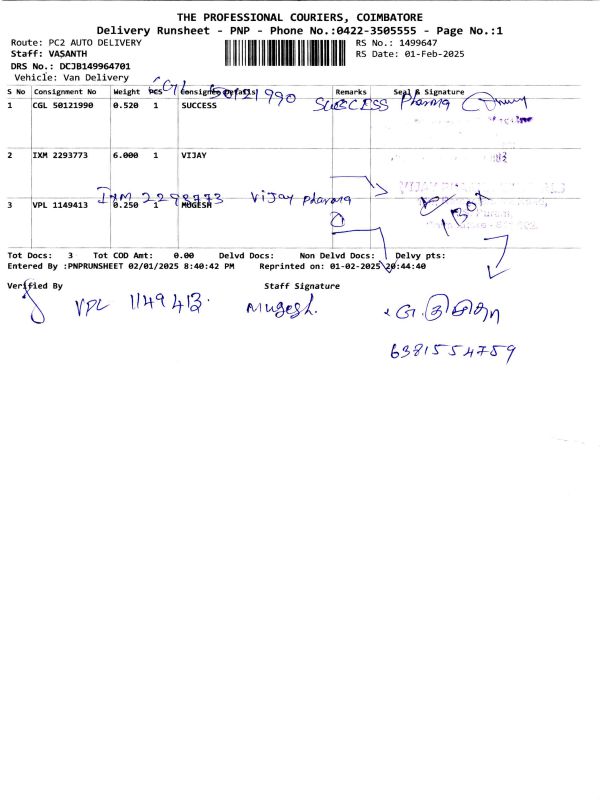 THE PROFESSIONAL COURIERS, COIMBATORE
Delivery Runsheet - PNP - Phone No.:0422-3505555 - Page No.:1
Route: PC2 AUTO DELIVERY
RS No.: 1499647
Staff: VASANTH
RS Date: 01-Feb-2025
DRS No.: DCJB149964701
Vehicle: Van Delivery
CGL 50121990 SUCCESS Pharma
S No Consignment No Weight pcs Consignee Details Remarks Seal & Signature
1 CGL 50121990 0.520 1 SUCCESS
2 IXM 2293773 6.000 1 VIJAY
IXM 2298773 Vijay Pharma
1 BOX
3 VPL 1149413 0.250 1 MUGESH
Tot Docs: 3 Tot COD Amt: 0.00 Delvd Docs: Non Delvd Docs: Delvy pts:
Entered By :PNPRUNSHEET 02/01/2025 8:40:42 PM Reprinted on: 01-02-2025 20:44:40
Verified By Staff Signature
VPL 1149413 Mugesh.
6381554759